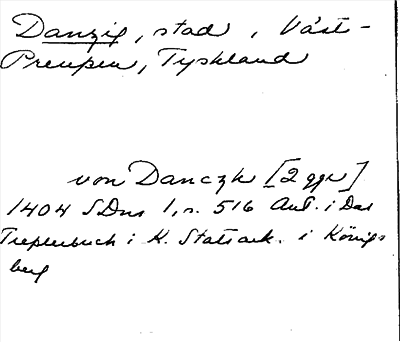 Danzig, stad, Väst-
Preussen, Tyskland
von Danczk [2 ggr]
1404 SDns 1, s. 516 Ant. i Das
Treslerbuch i K. Statsark. i Königs
berg